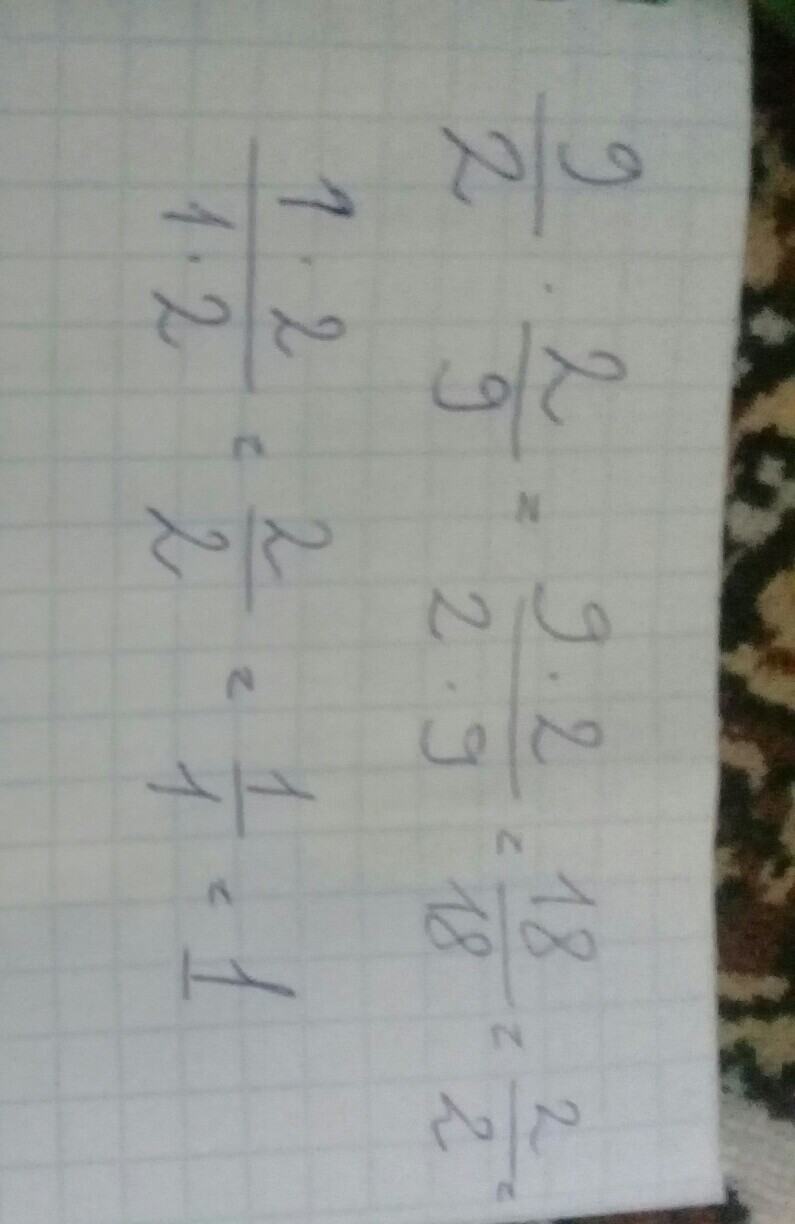 9/2 · 2/9 = 9·2/2·9 = 18/18 = 2/2 =
1·2/1·2 = 2/2 = 1/1 = 1